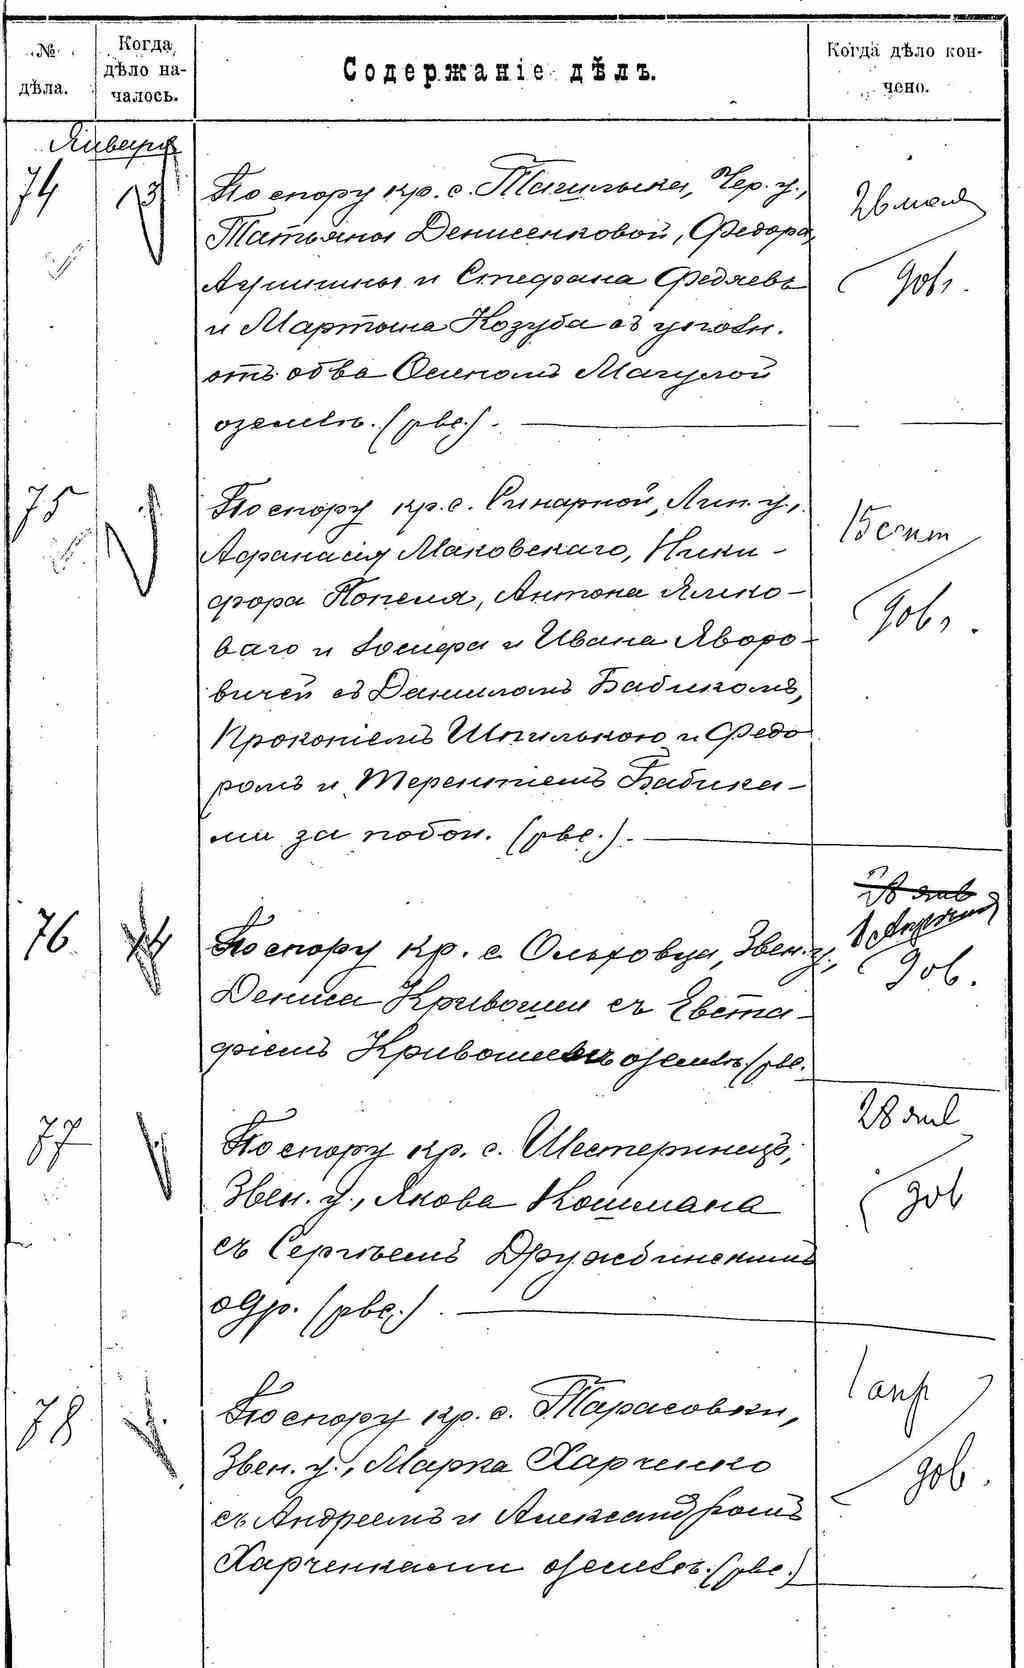 № дѣла.
Когда дѣло на-
чалось.
Содержаніе дѣлъ.
Когда дѣло кон-
чено.
Января
74
13
По спору кр. с. Тагильска, Чер. у.,
Татьяны Денисенковой, Федора,
и Стефана Федяевъ
и Мартына Козуба съ
отъ об-ва Осипомъ Магулой
оземлѣ. (рвс.).
26 мая
дов.
75
По спору кр. с. Ринарной, Лип. у.,
Афанасія Маковскаго, Ники-
фора Попеля, Антона Ялко-
ваго и Іосифа и Ивана Яворо-
вичей съ Даниломъ Бабикомъ,
Прокопіемъ Шпилькою и Федо
ромъ и Терентіемъ Бабика-
ми за побои. (рвс.).
15 сент
дов.
76
14
По спору кр. с. Ольховца, Звен. у.,
Дениса Кривошеи съ Евста-
фіемъ Кривошеемъ оземлѣ. (рвс.
28 янв
1 Апрѣля
дов.
77
По спору кр. с. Шестеринецъ,
Звен. у., Якова Кошмана
съ Сергѣемъ Дружбинскимъ
одр. (рвс.).
28 янв
дов
78
По спору кр. с. Тарасовки,
Звен. у., Марка Харченко
съ Андреемъ и Александромъ
Харченками оземлѣ. (рвс.)
1 апр
дов.